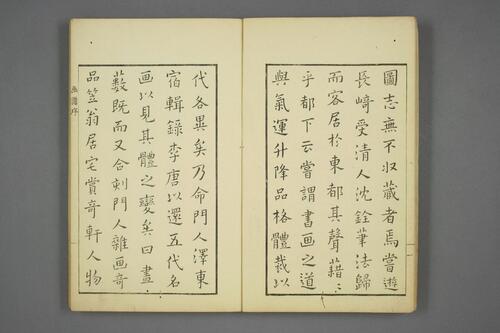 圖志無不収藏者焉嘗遊
長﨑受清人沈銓筆法歸
而客居於東都其聲藉〻
乎都下云嘗謂書画之道
與氣運升降品格體裁以
代各異矣乃命門人澤東
宿輯録李唐以還五代名
画以見其體之變矣曰畫
藪既而又合刻門人雜画奇
品笠翁居宅賞奇軒人物